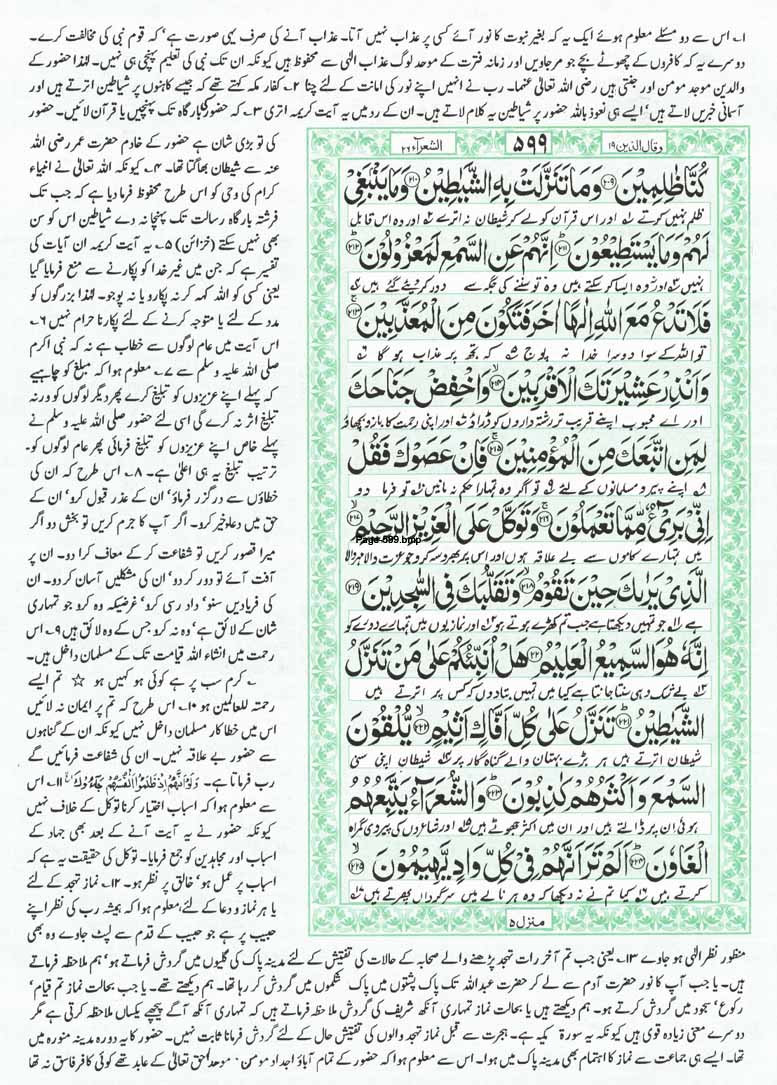 ۱۔ اس سے دو مسئلے معلوم ہوئے ایک یہ کہ بغیر نبوت کا نور آئے کسی پر عذاب نہیں آتا۔ عذاب آنے کی صرف یہی صورت ہے کہ قوم نبی کی مخالفت کرے۔
دوسرے یہ کہ کافروں کے چھوٹے بچے جو مرجاویں اور زمانہ فترت کے موحد لوگ عذاب الٰہی سے محفوظ ہیں کیونکہ ان تک نبی کی تعلیم پہنچی ہی نہیں۔ لہٰذا حضور کے
والدین موحد مومن اور جنتی ہیں رضی اللہ تعالیٰ عنہما۔ رب نے انہیں اپنے نور کی امانت کے لئے چنا ۲۔ کفار مکہ کہتے تھے کہ جیسے کاہنوں پر شیاطین اترتے ہیں اور
آسمانی خبریں لاتے ہیں' ایسے ہی نعوذ باللہ حضور پر شیاطین یہ کلام لاتے ہیں۔ ان کے رد میں یہ آیت کریمہ اتری ۳۔ کہ حضور کی بارگاہ تک پہنچیں یا قرآن لائیں۔ حضور
کی تو بڑی شان ہے حضور کے خادم حضرت عمر رضی اللہ
عنہ سے شیطان بھاگتا تھا۔ ۴۔ کیونکہ اللہ تعالیٰ نے انبیاء
کرام کی وحی کو اس طرح محفوظ فرما دیا ہے کہ جب تک
فرشتہ بارگاہ رسالت تک پہنچا نہ دے شیاطین اس کو سن
بھی نہیں سکتے (خزائن) ۵۔ یہ آیت کریمہ ان آیات کی
تفسیر ہے کہ جن میں غیر خدا کو پکارنے سے منع فرمایا گیا
یعنی کسی کو اللہ کہہ کر نہ پکارو یا نہ پوجو۔ لہٰذا بزرگوں کو
مدد کے لئے یا متوجہ کرنے کے لئے پکارنا حرام نہیں ۶۔
اس آیت میں عام لوگوں سے خطاب ہے نہ کہ نبی اکرم
صلی اللہ علیہ وسلم سے ۷۔ معلوم ہوا کہ مبلغ کو چاہیے
کہ پہلے اپنے عزیزوں کو تبلیغ کرے پھر دیگر لوگوں کو ورنہ
تبلیغ اثر نہ کرے گی اسی لئے حضور صلی اللہ علیہ وسلم نے
پہلے خاص اپنے عزیزوں کو تبلیغ فرمائی پھر عام لوگوں کو۔
ترتیب تبلیغ یہ ہی اعلیٰ ہے۔ ۸۔ اس طرح کہ ان کی
خطاؤں سے درگزر فرماؤ' ان کے عذر قبول کرو' ان کے
حق میں دعاء خیر کرو۔ اگر آپ کا جرم کریں تو بخش دو اگر
میرا قصور کریں تو شفاعت کر کے معاف کرا دو۔ ان پر
آفت آئے تو دور کر دو' ان کی مشکلیں آسان کر دو۔ ان
کی فریادیں سنو' داد رسی کرو' غرضیکہ وہ کرو جو تمہاری
شان کے لائق ہے' وہ نہ کرو جس کے وہ لائق ہیں ۹۔ اس
رحمت میں انشاء اللہ قیامت تک کے مسلمان داخل ہیں۔
کرم سب پر ہے کوئی ہو کہیں ہو ☆ تم ایسے
رحمتہ للعالمین ہو ۱۰۔ اس طرح کہ تم پر ایمان نہ لائیں
اس میں خطا کار مسلمان داخل نہیں کیونکہ ان کے گناہوں
سے حضور بے علاقہ نہیں۔ ان کی شفاعت فرمائیں گے
رب فرماتا ہے۔ وَلَوْ اَنَّهُمْ اِذْ ظَلَمُوْٓا اَنْفُسَهُمْ جَآءُوْكَ ۱۱۔ اس
سے معلوم ہوا کہ اسباب اختیار کرنا توکل کے خلاف نہیں
کیونکہ حضور نے یہ آیت آنے کے بعد بھی جہاد کے
اسباب اور مجاہدین کو جمع فرمایا۔ توکل کی حقیقت یہ ہے کہ
اسباب پر عمل ہو' خالق پر نظر ہو۔ ۱۲۔ نماز تہجد کے لئے
یا ہر نماز و دعا کے لئے، معلوم ہوا کہ ہمیشہ رب کی نظر اپنے
حبیب پر ہے جو حبیب کے قدم سے لپٹ جاوے وہ بھی
وقال الذین ۱۹ ۵۹۹ الشعرآء ۲۶
كُنَّا ظٰلِمِيْنَ ﴿۲۰۹﴾ وَمَا تَنَزَّلَتْ بِهِ الشَّيٰطِيْنُ ﴿۲۱۰﴾ وَمَا يَنْۢبَغِيْ
ظلم نہیں کرتے اور اس قرآن کو لے کر شیطان نہ اترے اور وہ اس قابل
لَهُمْ وَمَا يَسْتَطِيْعُوْنَ ﴿۲۱۱﴾ اِنَّهُمْ عَنِ السَّمْعِ لَمَعْزُوْلُوْنَ ﴿۲۱۲﴾
نہیں اور نہ وہ ایسا کر سکتے ہیں وہ تو سننے کی جگہ سے دور کر دیئے گئے ہیں
فَلَا تَدْعُ مَعَ اللّٰهِ اِلٰهًا اٰخَرَ فَتَكُوْنَ مِنَ الْمُعَذَّبِيْنَ ﴿۲۱۳﴾
تو اللہ کے سوا دوسرا خدا نہ پوج کہ تجھ پر عذاب ہو گا
وَاَنْذِرْ عَشِيْرَتَكَ الْاَقْرَبِيْنَ ﴿۲۱۴﴾ وَاخْفِضْ جَنَاحَكَ
اور اے محبوب اپنے قریب تر رشتہ داروں کو ڈراؤ اور اپنی رحمت کا بازو بچھاؤ
لِمَنِ اتَّبَعَكَ مِنَ الْمُؤْمِنِيْنَ ﴿۲۱۵﴾ فَاِنْ عَصَوْكَ فَقُلْ
اپنے پیرو مسلمانوں کے لئے تو اگر وہ تمہارا حکم نہ مانیں تو فرما دو
اِنِّيْ بَرِيْٓءٌ مِّمَّا تَعْمَلُوْنَ ﴿۲۱۶﴾ وَتَوَكَّلْ عَلَى الْعَزِيْزِ الرَّحِيْمِ ﴿۲۱۷﴾
Page-599.bmp
میں تمہارے کاموں سے بے علاقہ ہوں اور اس پر بھروسہ کرو جو عزت والا مہر والا
الَّذِيْ يَرٰىكَ حِيْنَ تَقُوْمُ ﴿۲۱۸﴾ وَتَقَلُّبَكَ فِي السّٰجِدِيْنَ ﴿۲۱۹﴾
ہے جو تمہیں دیکھتا ہے جب تم کھڑے ہوتے ہو اور نمازیوں میں تمہارے دورے کو
اِنَّهٗ هُوَ السَّمِيْعُ الْعَلِيْمُ ﴿۲۲۰﴾ هَلْ اُنَبِّئُكُمْ عَلٰى مَنْ تَنَزَّلُ
بے شک وہی سنتا جانتا ہے کیا میں تمہیں بتادوں کہ کس پر اترتے ہیں
الشَّيٰطِيْنُ ﴿۲۲۱﴾ تَنَزَّلُ عَلٰى كُلِّ اَفَّاكٍ اَثِيْمٍ ﴿۲۲۲﴾ يُّلْقُوْنَ
شیطان اترتے ہیں ہر بڑے بہتان والے گناہ گار پر شیطان اپنی سنی
السَّمْعَ وَاَكْثَرُهُمْ كٰذِبُوْنَ ﴿۲۲۳﴾ وَالشُّعَرَآءُ يَتَّبِعُهُمُ
ہوئی ان پر ڈالتے ہیں اور ان میں اکثر جھوٹے ہیں اور شاعروں کی پیروی گمراہ
الْغَاوٗنَ ﴿۲۲۴﴾ اَلَمْ تَرَ اَنَّهُمْ فِيْ كُلِّ وَادٍ يَّهِيْمُوْنَ ﴿۲۲۵﴾
کرتے ہیں کیا تم نے نہ دیکھا کہ وہ ہر نالے میں سرگرداں پھرتے ہیں
منزل ۵
منظور نظر الٰہی ہو جاوے ۱۳۔ یعنی جب تم آخر رات تہجد پڑھنے والے صحابہ کے حالات کی تفتیش کے لئے مدینہ پاک کی گلیوں میں گردش فرماتے ہو' ہم ملاحظہ فرماتے
ہیں۔ یا جب آپ کا نور حضرت آدم سے لے کر حضرت عبداللہ تک پاک پشتوں میں پاک شکموں میں گردش کر رہا تھا۔ ہم دیکھتے تھے۔ یا جب بحالت نماز تم قیام'
رکوع' سجود میں گردش کرتے ہو۔ ہم دیکھتے ہیں یا بحالت نماز تمہاری آنکھ شریف کی گردش ملاحظہ فرماتے ہیں کہ تمہاری آنکھ آگے پیچھے یکساں ملاحظہ کرتی ہے مگر
دوسرے معنی زیادہ قوی ہیں کیونکہ یہ سورۃ مکیہ ہے۔ ہجرت سے قبل نماز تہجد والوں کی تفتیش حال کے لئے گردش فرمانا ثابت نہیں۔ حضور کا یہ دورہ مدینہ منورہ میں
تھا۔ ایسے ہی جماعت سے نماز کا اہتمام بھی مدینہ پاک میں ہوا۔ اس سے معلوم ہوا کہ حضور کے تمام آباؤ اجداد مومن، موحد، حق تعالیٰ کے عابد تھے کوئی کافر فاسق نہ تھا